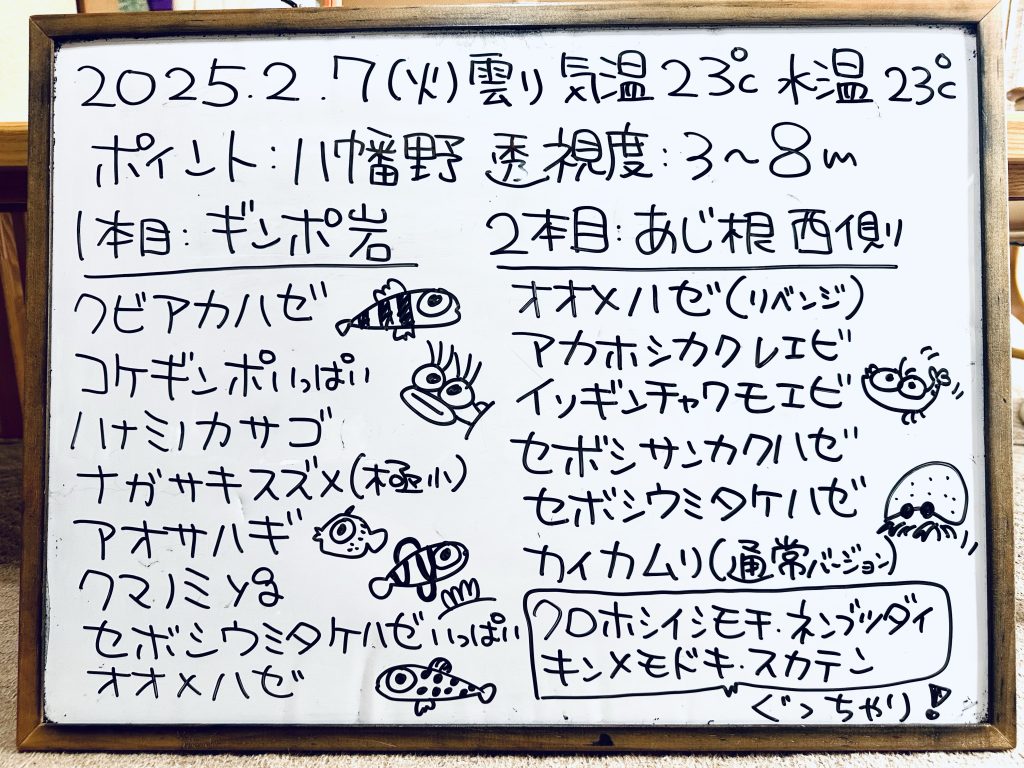 2025.2.7(火)雲り 気温23℃ 水温23℃
ポイント:八幡野 透視度:3〜8m
1本目:ギンポ岩
クビアカハゼ
コケギンポいっぱい
ハナミノカサゴ
ナガサキスズメ(極小)
アオサハギ
クマノミyg
セボシウミタケハゼいっぱい
オオメハゼ
2本目:あじ根 西側
オオメハゼ(リベンジ)
アカホシカクレエビ
イソギンチャクモエビ
セボシサンカクハゼ
セボシウミタケハゼ
カイカムリ(通常バージョン)
クロホシイシモチ・ネンブツダイ
キンメモドキ・スカテン
ぐっちゃり!